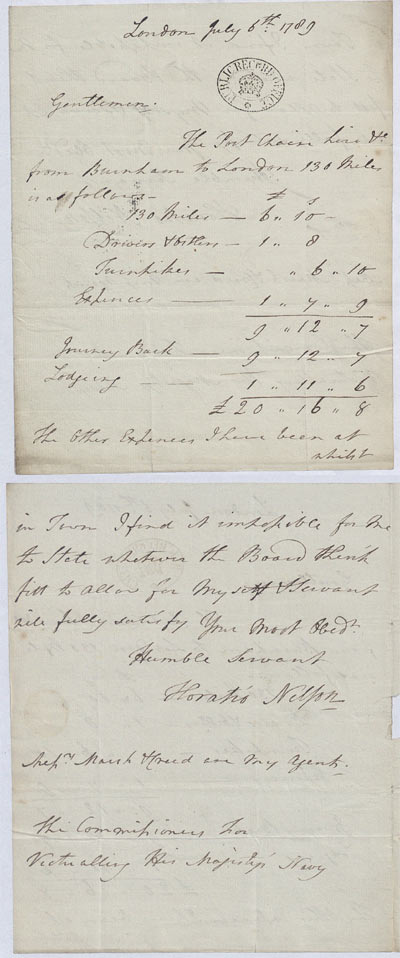 London July 6th 1789
PUBLIC RECORD OFFICE
Gentlemen.
The Post Chaise hire &c
from Burnham to London 130 Miles
is as follows -
£ s
130 Miles — 6 " 10 -
Drivers & Ostlers - 1 " 8
Turnpikes — " 6 " 10
Expences — 1 " 7 " 9
9 " 12 " 7
Journey Back — 9 " 12 " 7
Lodging — 1 " 11 " 6
£ 20 " 16 " 8
The Other Expences I have been at
whilst
in Town I find it impossible for me
to State whatever the Board think
fitt to allow for Myself & Servant
will fully satisfy Your Most Obedt.
Humble Servant
Horatio Nelson
Messrs Marsh & Creed are my Agents.
the Commissioners for
Victualling His Majesty's Navy